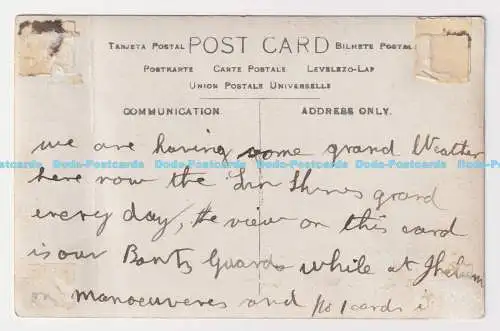 TARJETA POSTAL POST CARD BILHETE POSTAL
POSTKARTE CARTE POSTALE LEVELEZO-LAP
UNION POSTALE UNIVERSELLE
COMMUNICATION. ADDRESS ONLY.
we are having some grand Weather
Dodo-Postcards Dodo-Postcards Dodo-Postcards Dodo-Postcards Dodo-Postcards
here now the Sun Shines grand
every day, the view on this card
is our Bontz Guards while at Jhelum
on manoeuveres and No 1 cards i